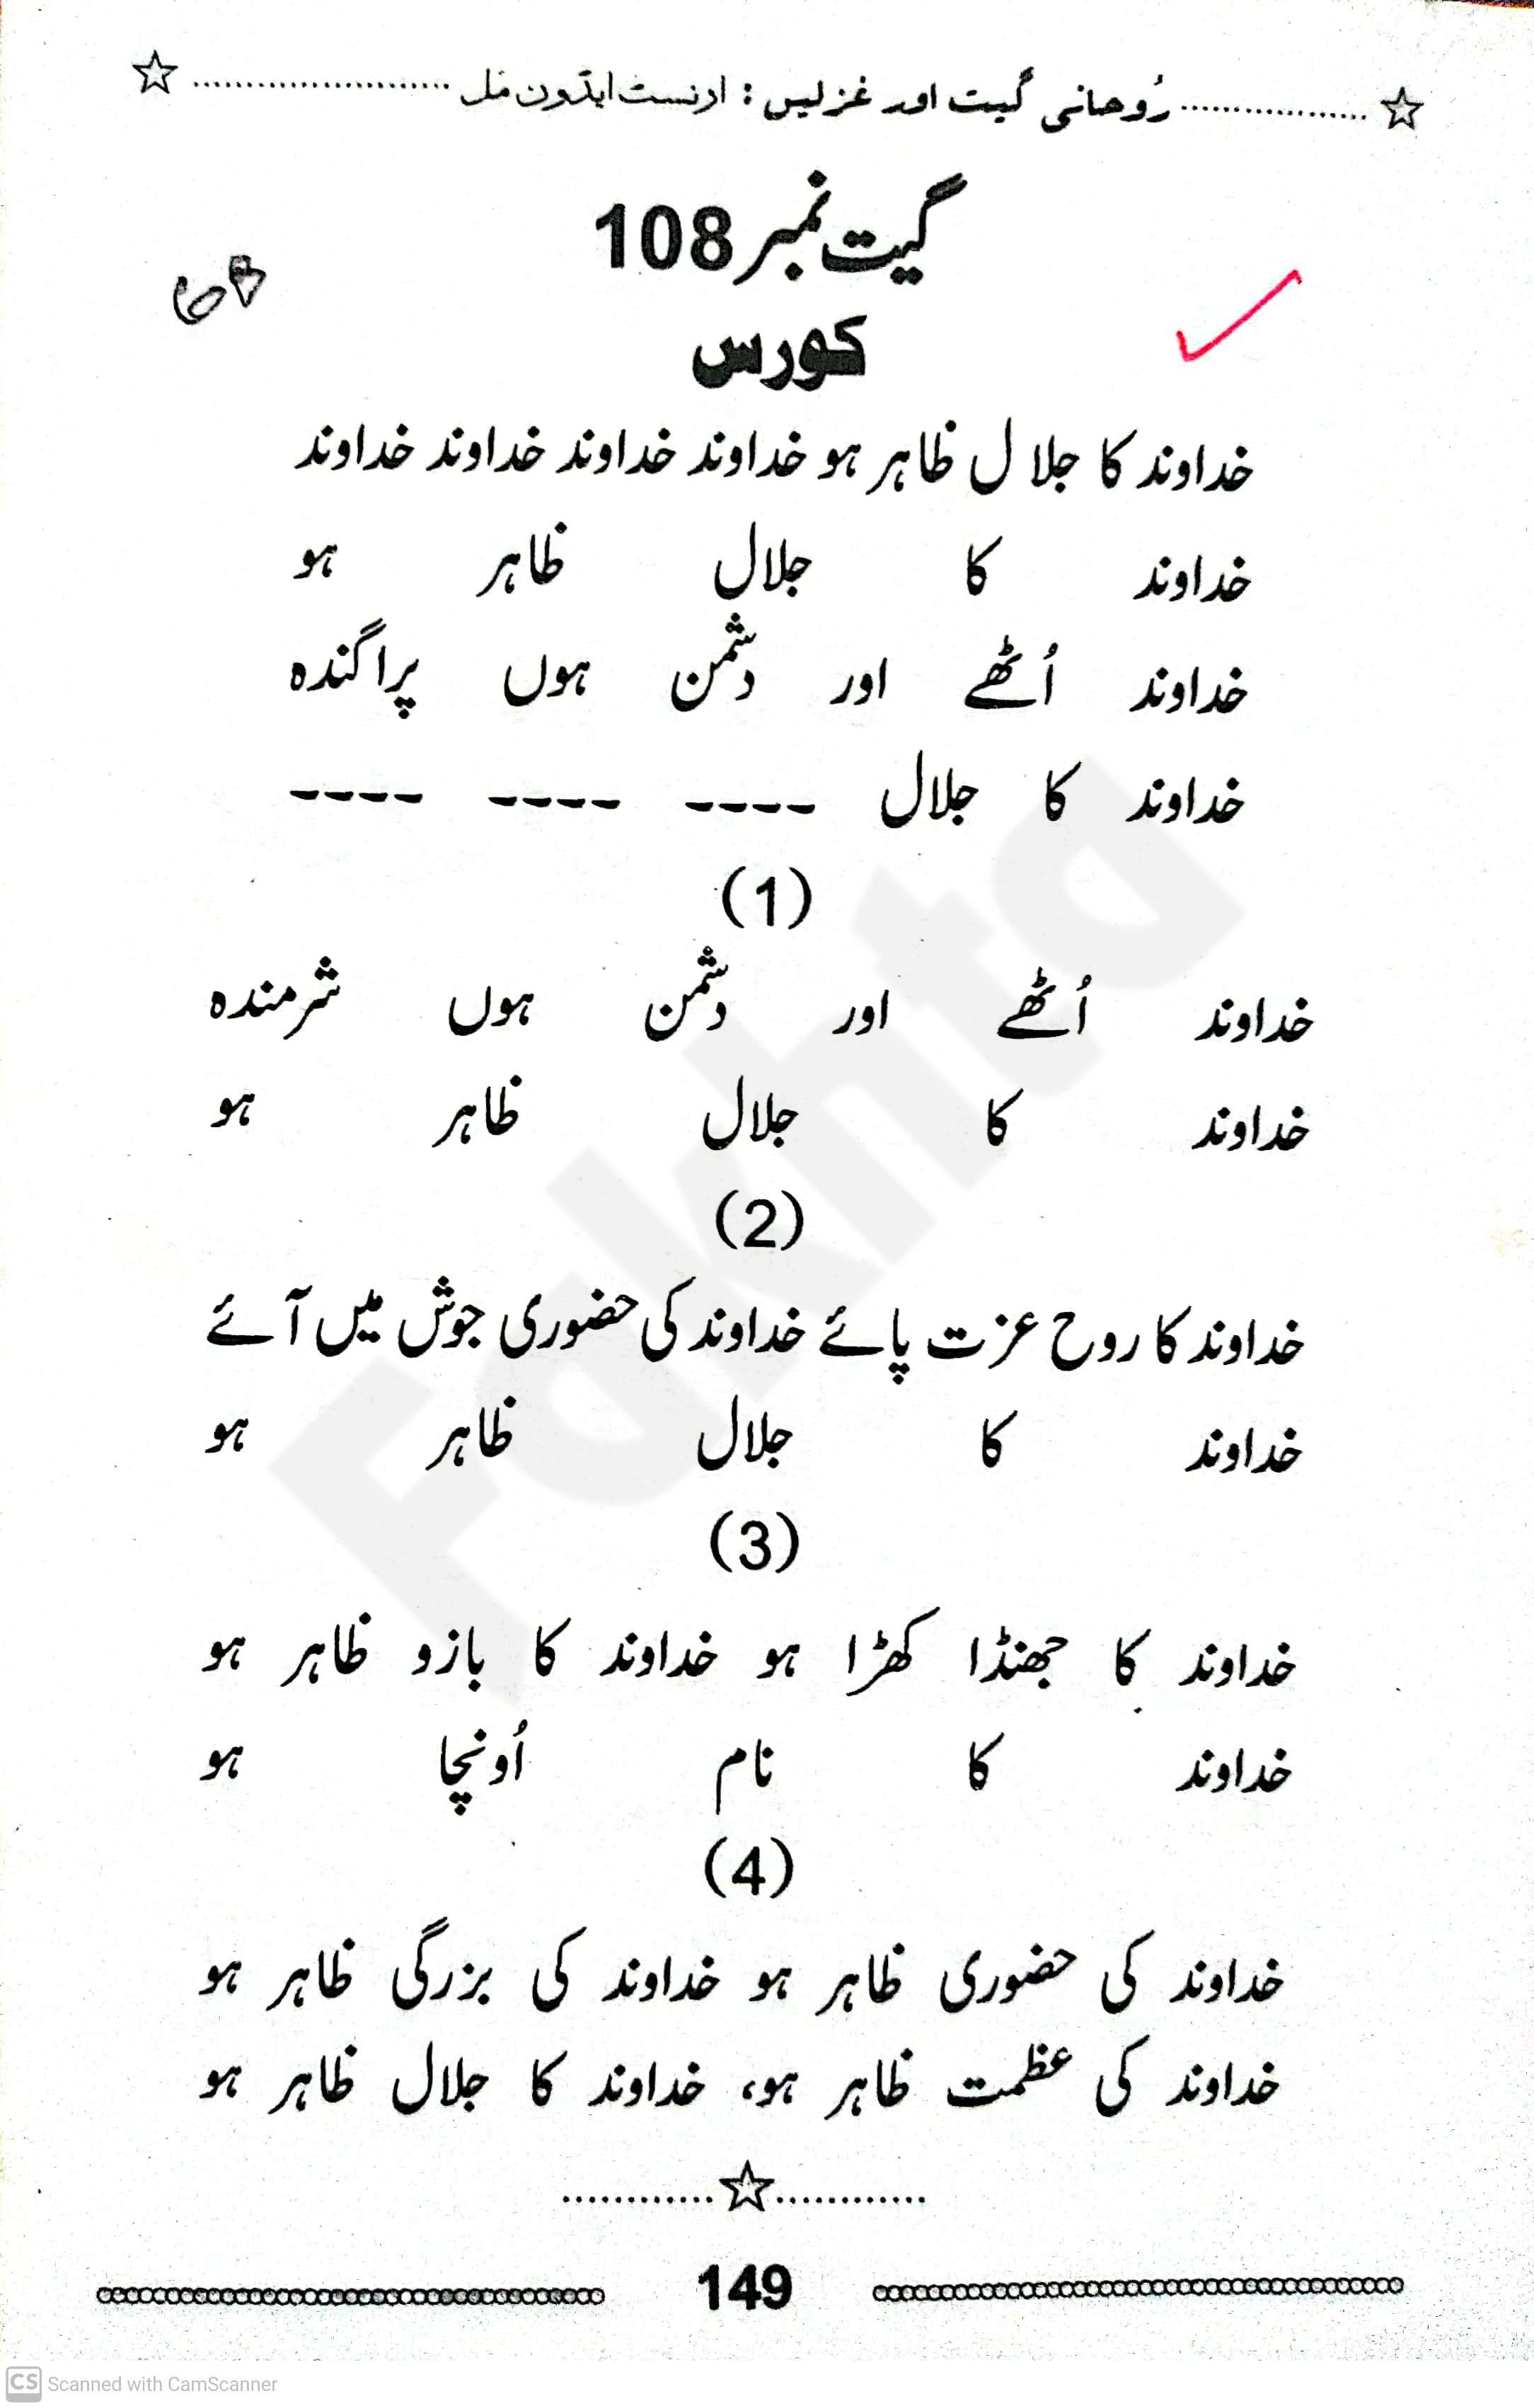 رُوحانی گیت اور غزلیں : ارنسٹ ایڈون مل
گیت نمبر 108
کورس
خداوند کا جلال ظاہر ہو خداوند خداوند خداوند خداوند
خداوند کا جلال ظاہر ہو
خداوند اُٹھے اور دشمن ہوں پراگندہ
خداوند کا جلال ---- ---- ----
(1)
خداوند اُٹھے اور دشمن ہوں شرمندہ
خداوند کا جلال ظاہر ہو
(2)
خداوند کا روح عزت پائے خداوند کی حضوری جوش میں آئے
خداوند کا جلال ظاہر ہو
(3)
خداوند کا جھنڈا کھڑا ہو خداوند کا بازو ظاہر ہو
خداوند کا نام اُونچا ہو
(4)
خداوند کی حضوری ظاہر ہو خداوند کی بزرگی ظاہر ہو
خداوند کی عظمت ظاہر ہو، خداوند کا جلال ظاہر ہو
149
Fakhta
CS Scanned with CamScanner